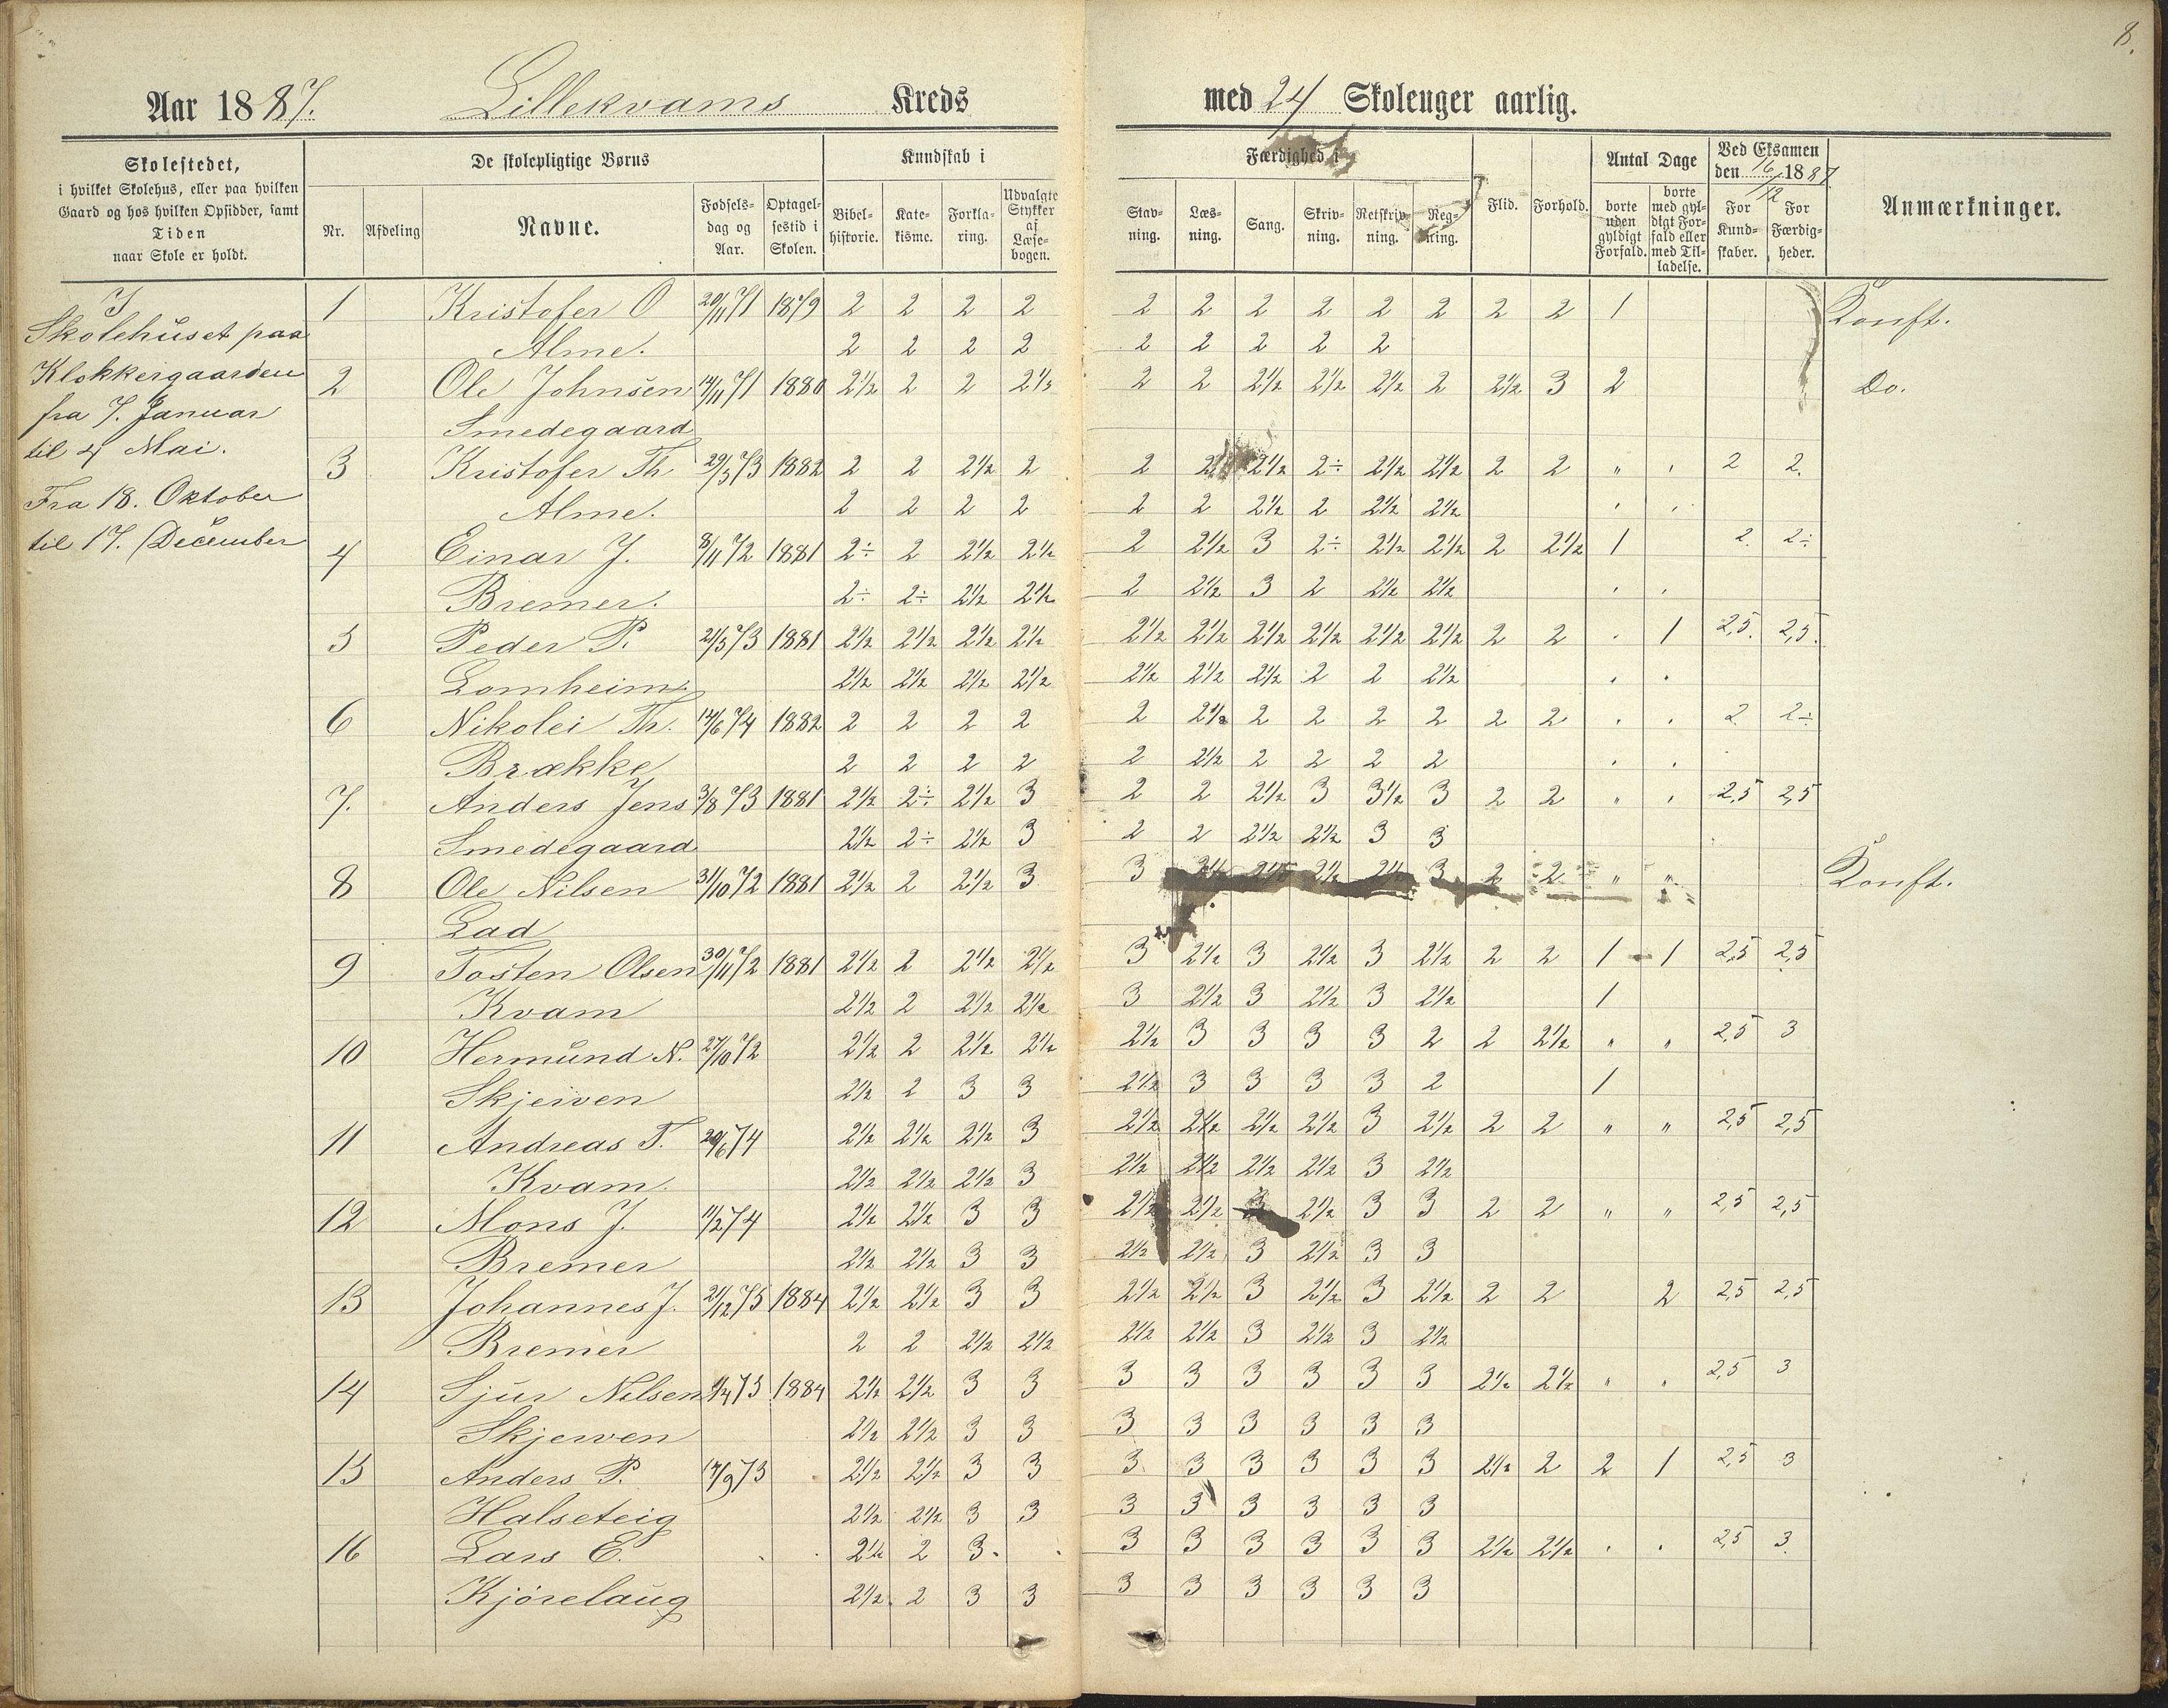 8.
Aar 1887. Lillekvams Kreds med 24 Skoleuger aarlig.
Skolestedet, i hvilket Skolehus, eller paa hvilken Gaard og hos hvilken Opsidder, samt Tiden naar Skole er holdt.
De skolepligtige Børns
Nr. Afdeling Navne. Fødselsdag og Aar. Optagelsestid i Skolen.
Kundskab i
Bibelhistorie. Katekisme. Forklaring. Udvalgte Stykker af Læsebogen.
Færdighed i
Stavning. Læsning. Sang. Skrivning. Retskrivning. Regning.
Flid. Forhold.
Antal Dage
borte uden gyldigt Forfald. borte med gyldigt Forfald eller med Tilladelse.
Ved Eksamen den 16/12 1887
For Kundskaber. For Færdigheder.
Anmærkninger.
I
Skolehuset paa
Klokkergaarden
fra 7. Januar
til 4 Mai.
Fra 18. Oktober
til 17. December
1 Kristofer O 20/11 71 1879 2 2 2 2 2 2 2 2 2 2 2 2 1 Konft.
Alme. 2 2 2 2 2 2 2 2 2
2 Ole Johnsen 14/11 71 1880 2½ 2 2 2½ 2 2 2½ 2½ 2½ 2 2½ 3 2 Do.
Smedegaard
3 Kristofer Th 29/3 73 1882 2 2 2½ 2 2 2½ 2÷ 2½ 2½ 2 2 " , 2 2.
Alme. 2 2 2 2 2 2 2½ 2 2½ 2½
4 Einar J. 8/11 72 1881 2÷ 2 2½ 2½ 2 2½ 3 2÷ 2½ 2½ 2 2½ 1 2. 2÷
Bremer. 2÷ 2÷ 2½ 2½ 2 2½ 3 2 2½ 2½
5 Peder P. 21/3 73 1881 2½ 2½ 2½ 2½ 2½ 2½ 2½ 2½ 2½ 2½ 2 2 . 1 2,5. 2,5.
Lomheim. 2½ 2½ 2½ 2½ 2½ 2½ 2½ 2 2 2½
6 Nikolei Th. 14/6 74 1882 2 2 2 2 2 2½ 2 2 2 2 2 2 . . 2 2÷
Brække 2 2 2 2 2 2½ 2 2 2 2
7. Anders Jens 3/8 73 1881 2½ 2÷ 2½ 3 2 2 2½ 3 3½ 3 2 2 " , 2,5 2,5
Smedegaard 2½ 2÷ 2½ 3 2 2 2½ 2½ 3 3
8 Ole Nilsen 31/10 72 1881 2½ 2 2½ 3 3 2½ 2½ 2½ 3 2 2 " " Konft.
Lad
9 Tosten Olsen 30/11 72 1881 2½ 2 2½ 2½ 3 2½ 3 2½ 3 2½ 2 2 1 1 2,5 2,5
Kvam 2½ 2 2½ 2½ 3 2½ 3 2½ 3 2½ 1
10 Hermund N. 27/10 72 2½ 2 2½ 2½ 2½ 3 3 3 3 2 2 2½ " " 2,5 3
Skjerven 2½ 2 3 3 2½ 3 3 3 3 2 1
11 Andreas T. 20/6 74 2½ 2½ 2½ 3 2½ 2½ 2½ 2½ 3 2½ 2 2 " " 2,5 2,5
Kvam. 2½ 2½ 2½ 3 2½ 2½ 2½ 2½ 3 2½
12 Mons J. 11/2 74 2½ 2½ 3 3 2½ 2½ 3 2½ 3 3 2 2 " " 2,5 2,5
Bremer 2½ 2½ 3 3 2½ 2½ 3 2½ 3 3
13 Johannes J. 21/12 75 1884 2½ 2½ 3 3 2½ 2½ 3 2½ 3 2½ 2 2 2 2,5 2,5
Bremer 2 2 2½ 2½ 2½ 2½ 3 2½ 3 2½
14 Sjur Nilsen 75 1884 2½ 2½ 3 3 3 3 3 3 3 3 2½ 2½ " . 2,5 3
Skjerven 2½ 2½ 3 3 3 3 3 3 3 3
15 Anders P. 17/9 73 2½ 2½ 3 3 3 3 3 3 3 3 2½ 2 2 1 2,5 3
Halseteig 2½ 2½ 3 3 3 3 3 3 3 3
16 Lars E. 2½ 2 3. 3 3 3 3 3 3 2½ 2½ . . 2,5 3
Kjørelaug 2½ 2 3 3 3 3 3 3 3 3